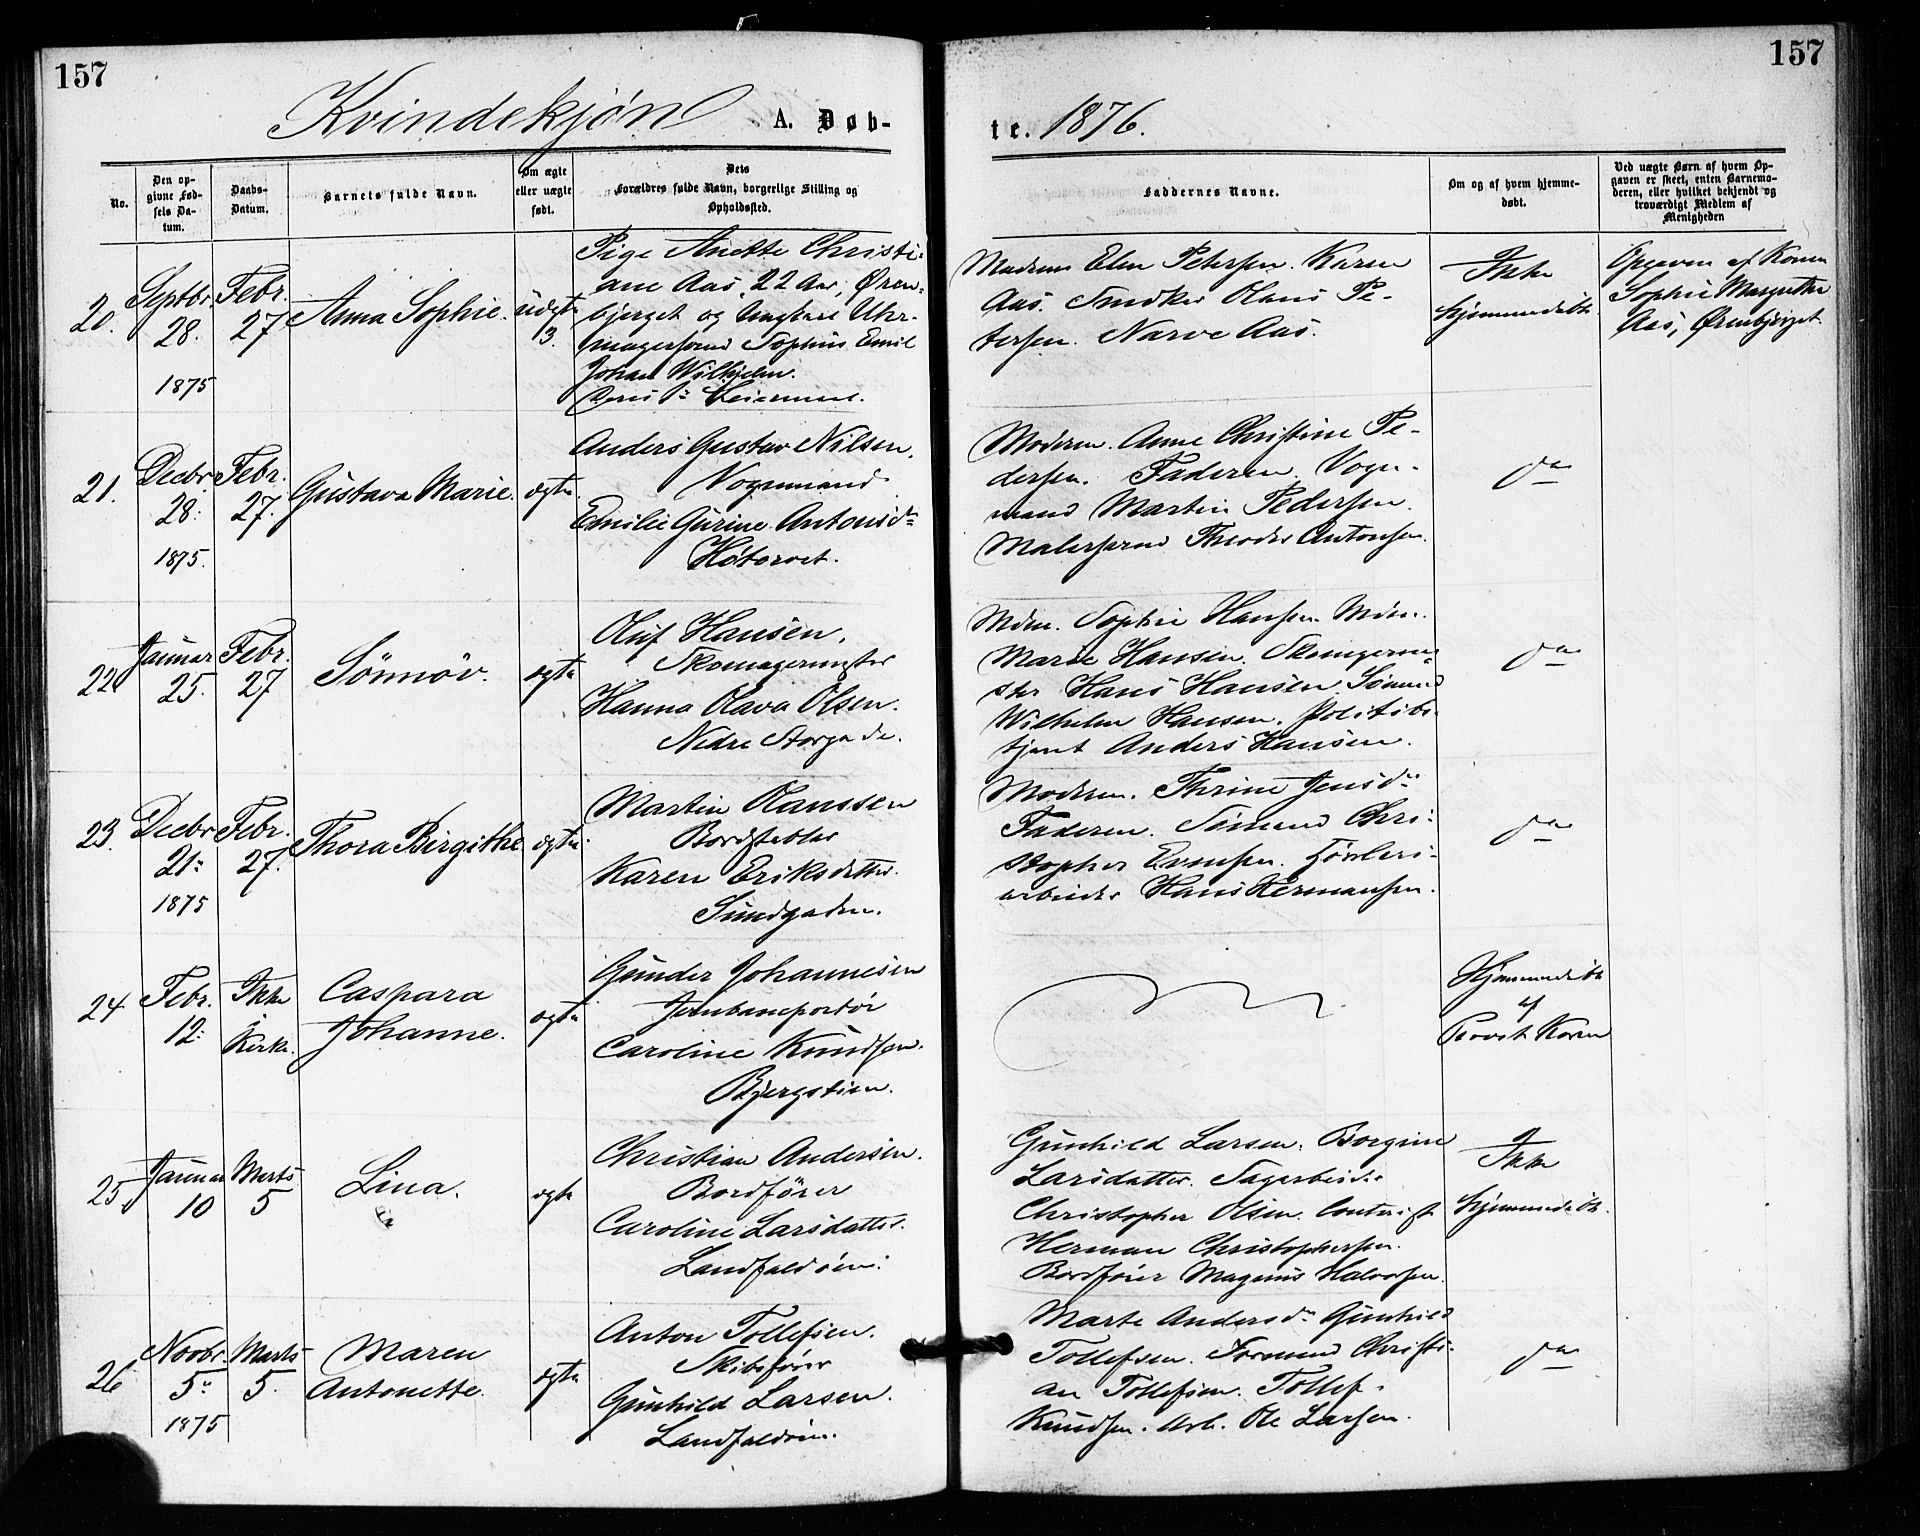 157
157
Kvindekjøn A. Døb-
te. 1876.
No.
Den op-
givne Fød-
sels Da-
tum.
Daabs-
Datum.
Barnets fulde Navn.
Om ægte
eller uægte
født.
Dets
Forældres fulde Navn, borgerlige Stilling og
Opholdssted.
Faddernes Navne.
Om og af hvem hjemme-
døbt.
Ved uægte Børn af hvem Op-
gaven er skeet, enten Barnemo-
deren, eller hvilket bekjendt og
troværdigt Medlem af
Menigheden
20.
Septbr.
28.
1875
Febr.
27
Anna Sophie.
uægte
Pige Anette Christi-
ane Aas, 22 Aar, Øren-
bjerget og Ungkarl Uhr-
magersvend Sophus Emil
Johan Wilhjelm.
Leiermaal.
Madam Elen Petersen. Karen
Aas. Snedker Olaus Pe-
tersen. Narve Aas.
Ikke
hjemmedøbt.
Opgaven af Konen
Sophie Margrethe
Aas, Ørenbjerget.
21.
Decbr.
28.
1875.
Febr.
27.
Gustava Marie.
ægte.
Anders Gustav Nilsen.
Vognmand.
Emilie Gurine Antonsdtr
Høtorvet.
Moderen. Anne Christine Pe-
dersen. Faderen. Vogn-
mand Martin Pedersen.
Malersvend Theodor Antonsen.
do
22.
Januar
25.
Febr.
27
Sönnöv.
ægte
Oluf Hansen.
Skomagermester
Hanna Olava Olsen.
Nedre Storgade.
Mdm. Sophie Hansen. Mdm.
Marie Hansen. Skomagerme-
ster Hans Hansen. Sömand
Wilhelm Hansen. Politibe-
tjent Anders Hansen.
do
23.
Decbr
21.
1875
Febr.
27.
Thora Birgithe
ægte.
Martin Hanssen
Bordstabler
Karen Eriksdatter.
Sundgaden.
Moderen. Thrine Jensdtr
Faderen. Sömand Chri-
stopher Evensen.
arbeider Hans Hermansen.
do
24
Febr.
12.
Ikke
i
Kirke.
Caspara
Johanne.
ægte
Gunder Johannesen
Jernbaneportör
Caroline Knudsen.
Bjergstien.
Hjemmedøbt
af
Provst Koren
25.
Januar
10
Marts
5
Lina.
ægte
Christian Andersen.
Bordförer
Caroline Larsdatter.
Landfaldöen.
Gunhild Larsen. Borgine
Larsdatter. Sagarbeider
Christopher Olsen. Contorist
Herman Christophersen.
Bordförer Magnus Halvorsen.
Ikke
hjemmedøbt.
26
Novbr.
5.
1875
Marts
5.
Maren
Antonette.
ægte
Anton Tollefsen.
Skibsförer
Gunhild Larsen.
Landfaldöen.
Marte Andersdtr Gunhild
Tollefsen. Formand Christi-
an Tollefsen. Tollef
Knudsen. Arb. Ole Larsen.
do